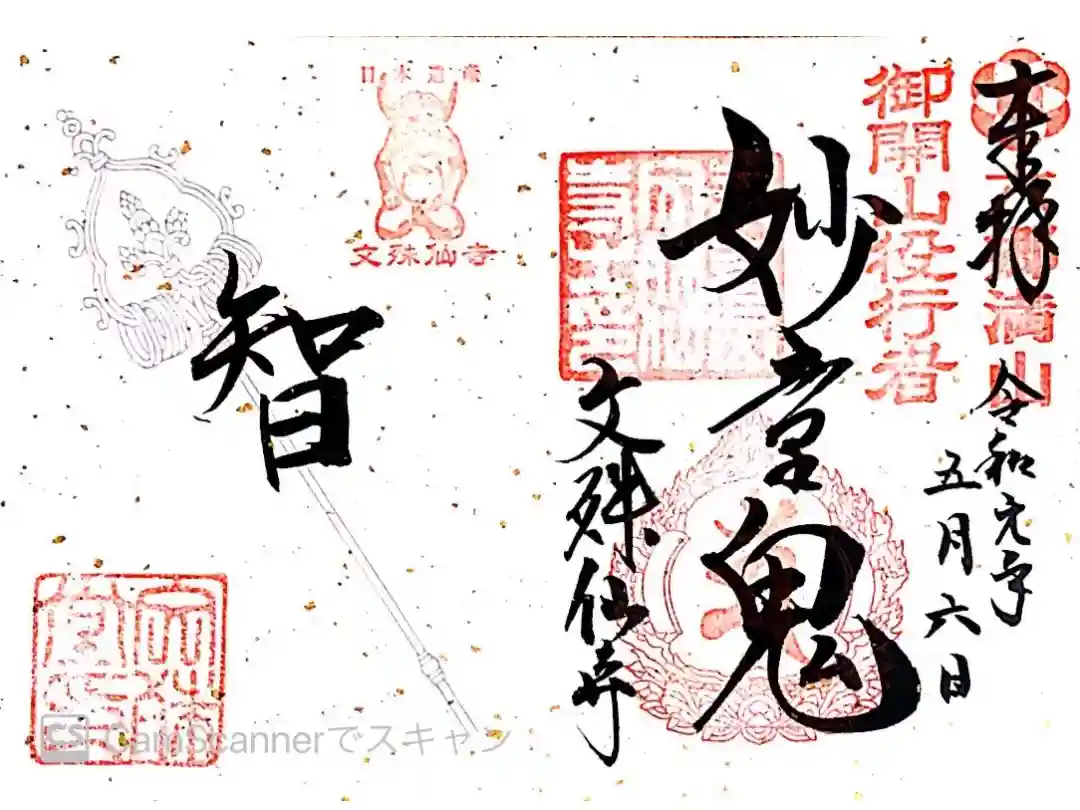 奉拝
満山
令和元年
五月六日
御開山役行者
妙童鬼
文殊仙寺
日本遺産
文殊仙寺
智
CS CamScannerでスキャン